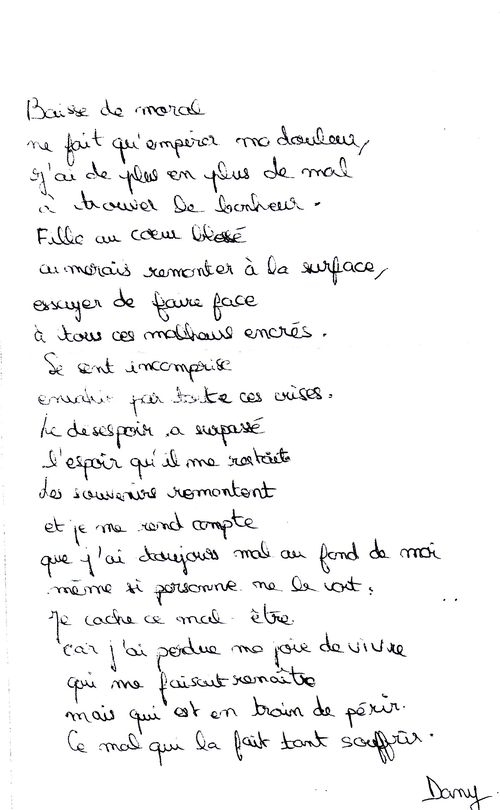 Baisse de moral
ne fait qu'empirer ma douleur,
j'ai de plus en plus de mal
à trouver le bonheur.
Fille au cœur blessé
aimerais remonter à la surface,
essayer de faire face
à tous ces malheurs encrés.
Se sent incomprise
envahir par toute ces crises.
Le desespoir a surpassé
l'espoir qu'il me restait
des souvenirs remontent
et je me rend compte
que j'ai toujours mal au fond de moi
même si personne ne le voit.
Je cache ce mal-être
car j'ai perdue ma joie de vivre
qui me faisait renaître
mais qui est en train de périr.
Ce mal qui la fait tant souffrir.
Dany